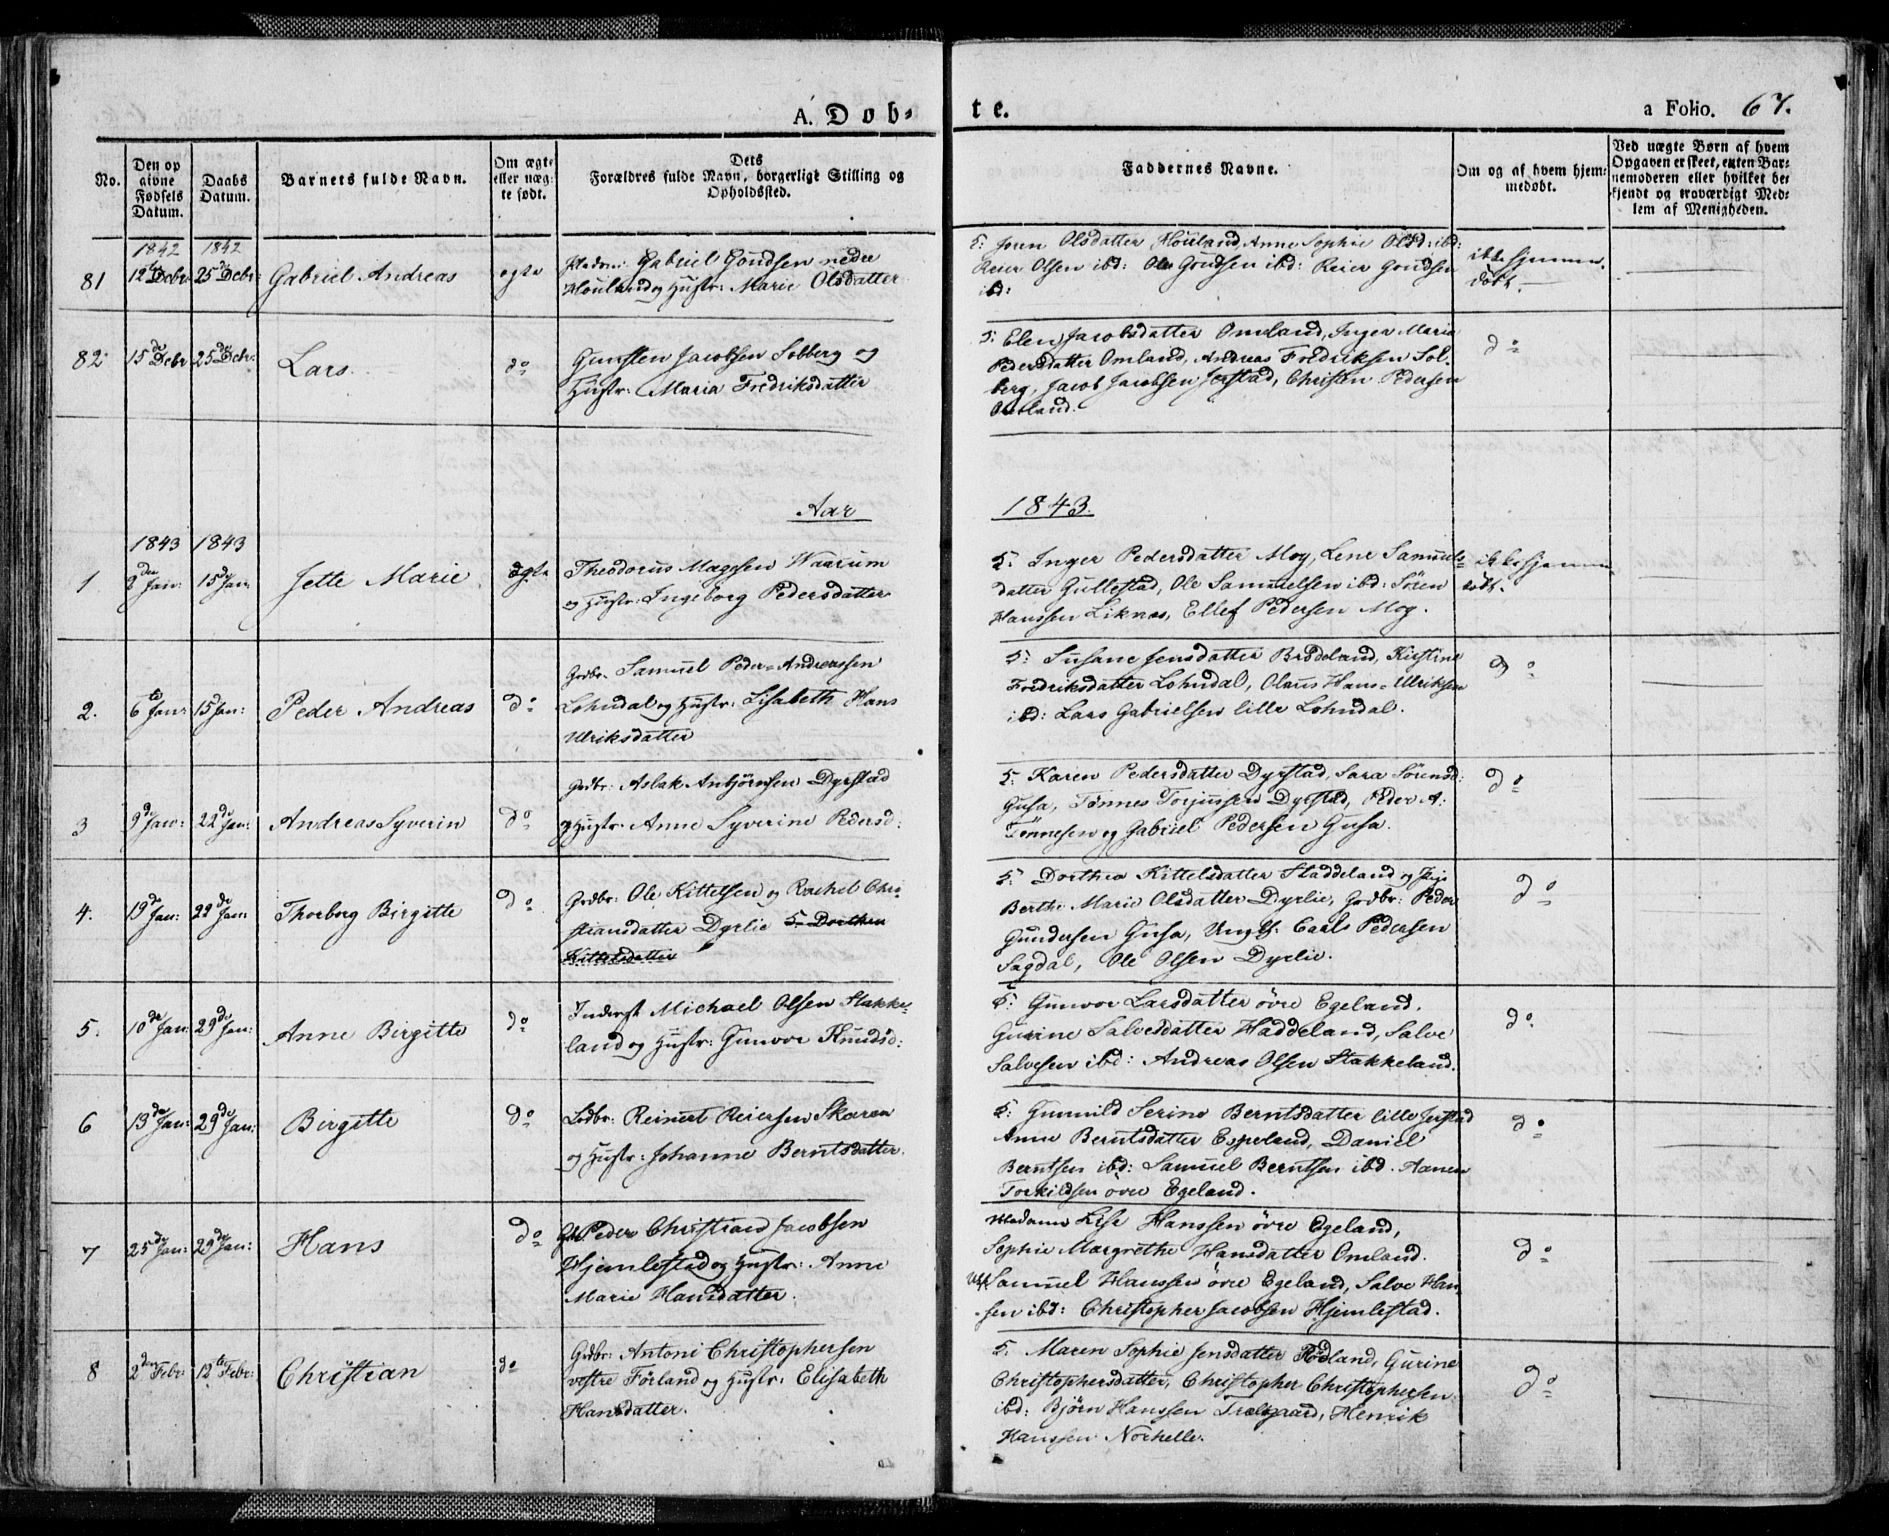 A. Døb-
te.
a Folio. 67.
No.
Den op
givne
Fødsels
Datum.
Daabs
Datum.
Barnets fulde Navn.
Om ægte
eller uæg-
te født.
Dets
Forældres fulde Navn, borgerligt Stilling og
Opholdssted.
Faddernes Navne.
Om og af hvem hjem-
medøbt.
Ved uægte Børn af hvem
Opgaven er skeet, enten Bar-
nemoderen eller hvilket be-
kjendt og troværdigt Med-
lem af Menigheden.
1842 1842
81 12 Debr: 25 de Debr: Gabriel Andreas ægte
Gabriel Goudsen nedre
Houland og Hustr: Marie Olsdatter
5: Joren Olsdatter Houland, Anne Sophie Olsd: ibd:
Reier Olsen ibd: Ole Goudsen ibd: Reier Goudsen
ibd:
ikke hjemme-
døbt.
82 15 de Debr 25 de Debr: Lars do
Gunsten Jacobsen Solberg og
Hustr: Maria Fredriksdatter
5: Elen Jacobsdatter Omland, Inger Maria
Pedersdatter Omland, Andreas Fredriksen Sol-
berg, Jacob Jacobsen Jerstad, Christen Pedersen
Omland.
do
Aar
1843.
1843 1843
1 2 den Jan: 15 de Jan: Jette Marie ægte
Theodorus Magesen Waarum
og Hustr: Ingeborg Pedersdatter
5: Inger Pedersdatter Moy, Lene Samuels-
datter Gullestad, Ole Samuelsen ibd: Sören
Hanssen Liknes, Ellef Pedersen Moy.
ikke hjemme
døbt.
2. 6 te Jan: 15 Jan: Peder Andreas do
Grdbr. Samuel Peder-Andreassen
Lohndal og Hustr: Lisabeth Hans
Ulriksdatter
5: Susane Jensdatter Brödeland, Kirstine
Fredriksdatter Lohndal, Olaus Hans-Ulriksen
ibd: Lars Gabrielsen lille Lohndal.
do
3 9 de Jan: 22 de Jan: Andreas Syverin do
Grdbr: Aslak Anbjörnsen Dyrstad
og Hustr: Anne Syverine Pedersd:
5: Karen Pedersdatter Dyrstad, Sara Sörensd:
Gusa, Tönnes Torjussen Dyrstad, Peder A:
Tönnesen og Gabriel Pedersen Gusa.
do
4. 19 de Jan: 22 de Jan: Thorborg Birgitte do
Grdbr: Ole Kittelsen og Rachel Chri-
stiansdatter Dyrlie 5. Dorthea
Kittelsdatter
5: Dorthea Kittelsdatter Staddeland og Pige
Berthe Marie Olsdatter Dyrlie, Grdbr: Peder
Gundersen Gusa, Ungk. Carls Pedersen
Sagdal, Ole Olsen Dyrlie.
do
5. 10 de Jan: 29 de Jan: Anne Birgitte do
Inderst Michael Olsen Stakke-
land og Hustr: Gunvor Knudsd:
5: Gunvor Larsdatter övre Egeland,
Gurine Salvesdatter Haddeland, Salve
Salvesen ibd: Andreas Olsen Stakkeland.
do
6 13 de Jan: 29 de Jan: Birgitte do
Ledbr: Reinert Reiersen Skaren
og Hustr: Johanne Berntsdatter.
5: Gunnild Serine Berntsdatter lille Jerstad
Anne Berntsdatter Espeland, Daniel
Berntsen ibd: Samuel Berntsen ibd. Aanen
Torkildsen övre Egeland.
do
7 25 de Jan: 29 de Jan: Hans do
Peder Christian Jacobsen
Hjemlestad og Hustr: Anne
Marie Hansdatter.
Madame Lise Hanssen övre Egeland,
Sophie Margrethe Hansdatter Omland.
Samuel Hanssen övre Egeland, Salve Han-
sen ibd: Christopher Jacobsen Hjemlestad.
do
8 2 den Febr: 12 te Febr: Christian do
Grdbr: Antoni Christophersen
vestre Förland og Hustr: Elisabeth
Hansdatter.
5: Maren Sophie Jensdatter Rödland, Gurine
Christophersdatter, Christopher Christophersen
ibd: Björn Hanssen Trælgaard, Henrik
Hanssen Norhelle.
do